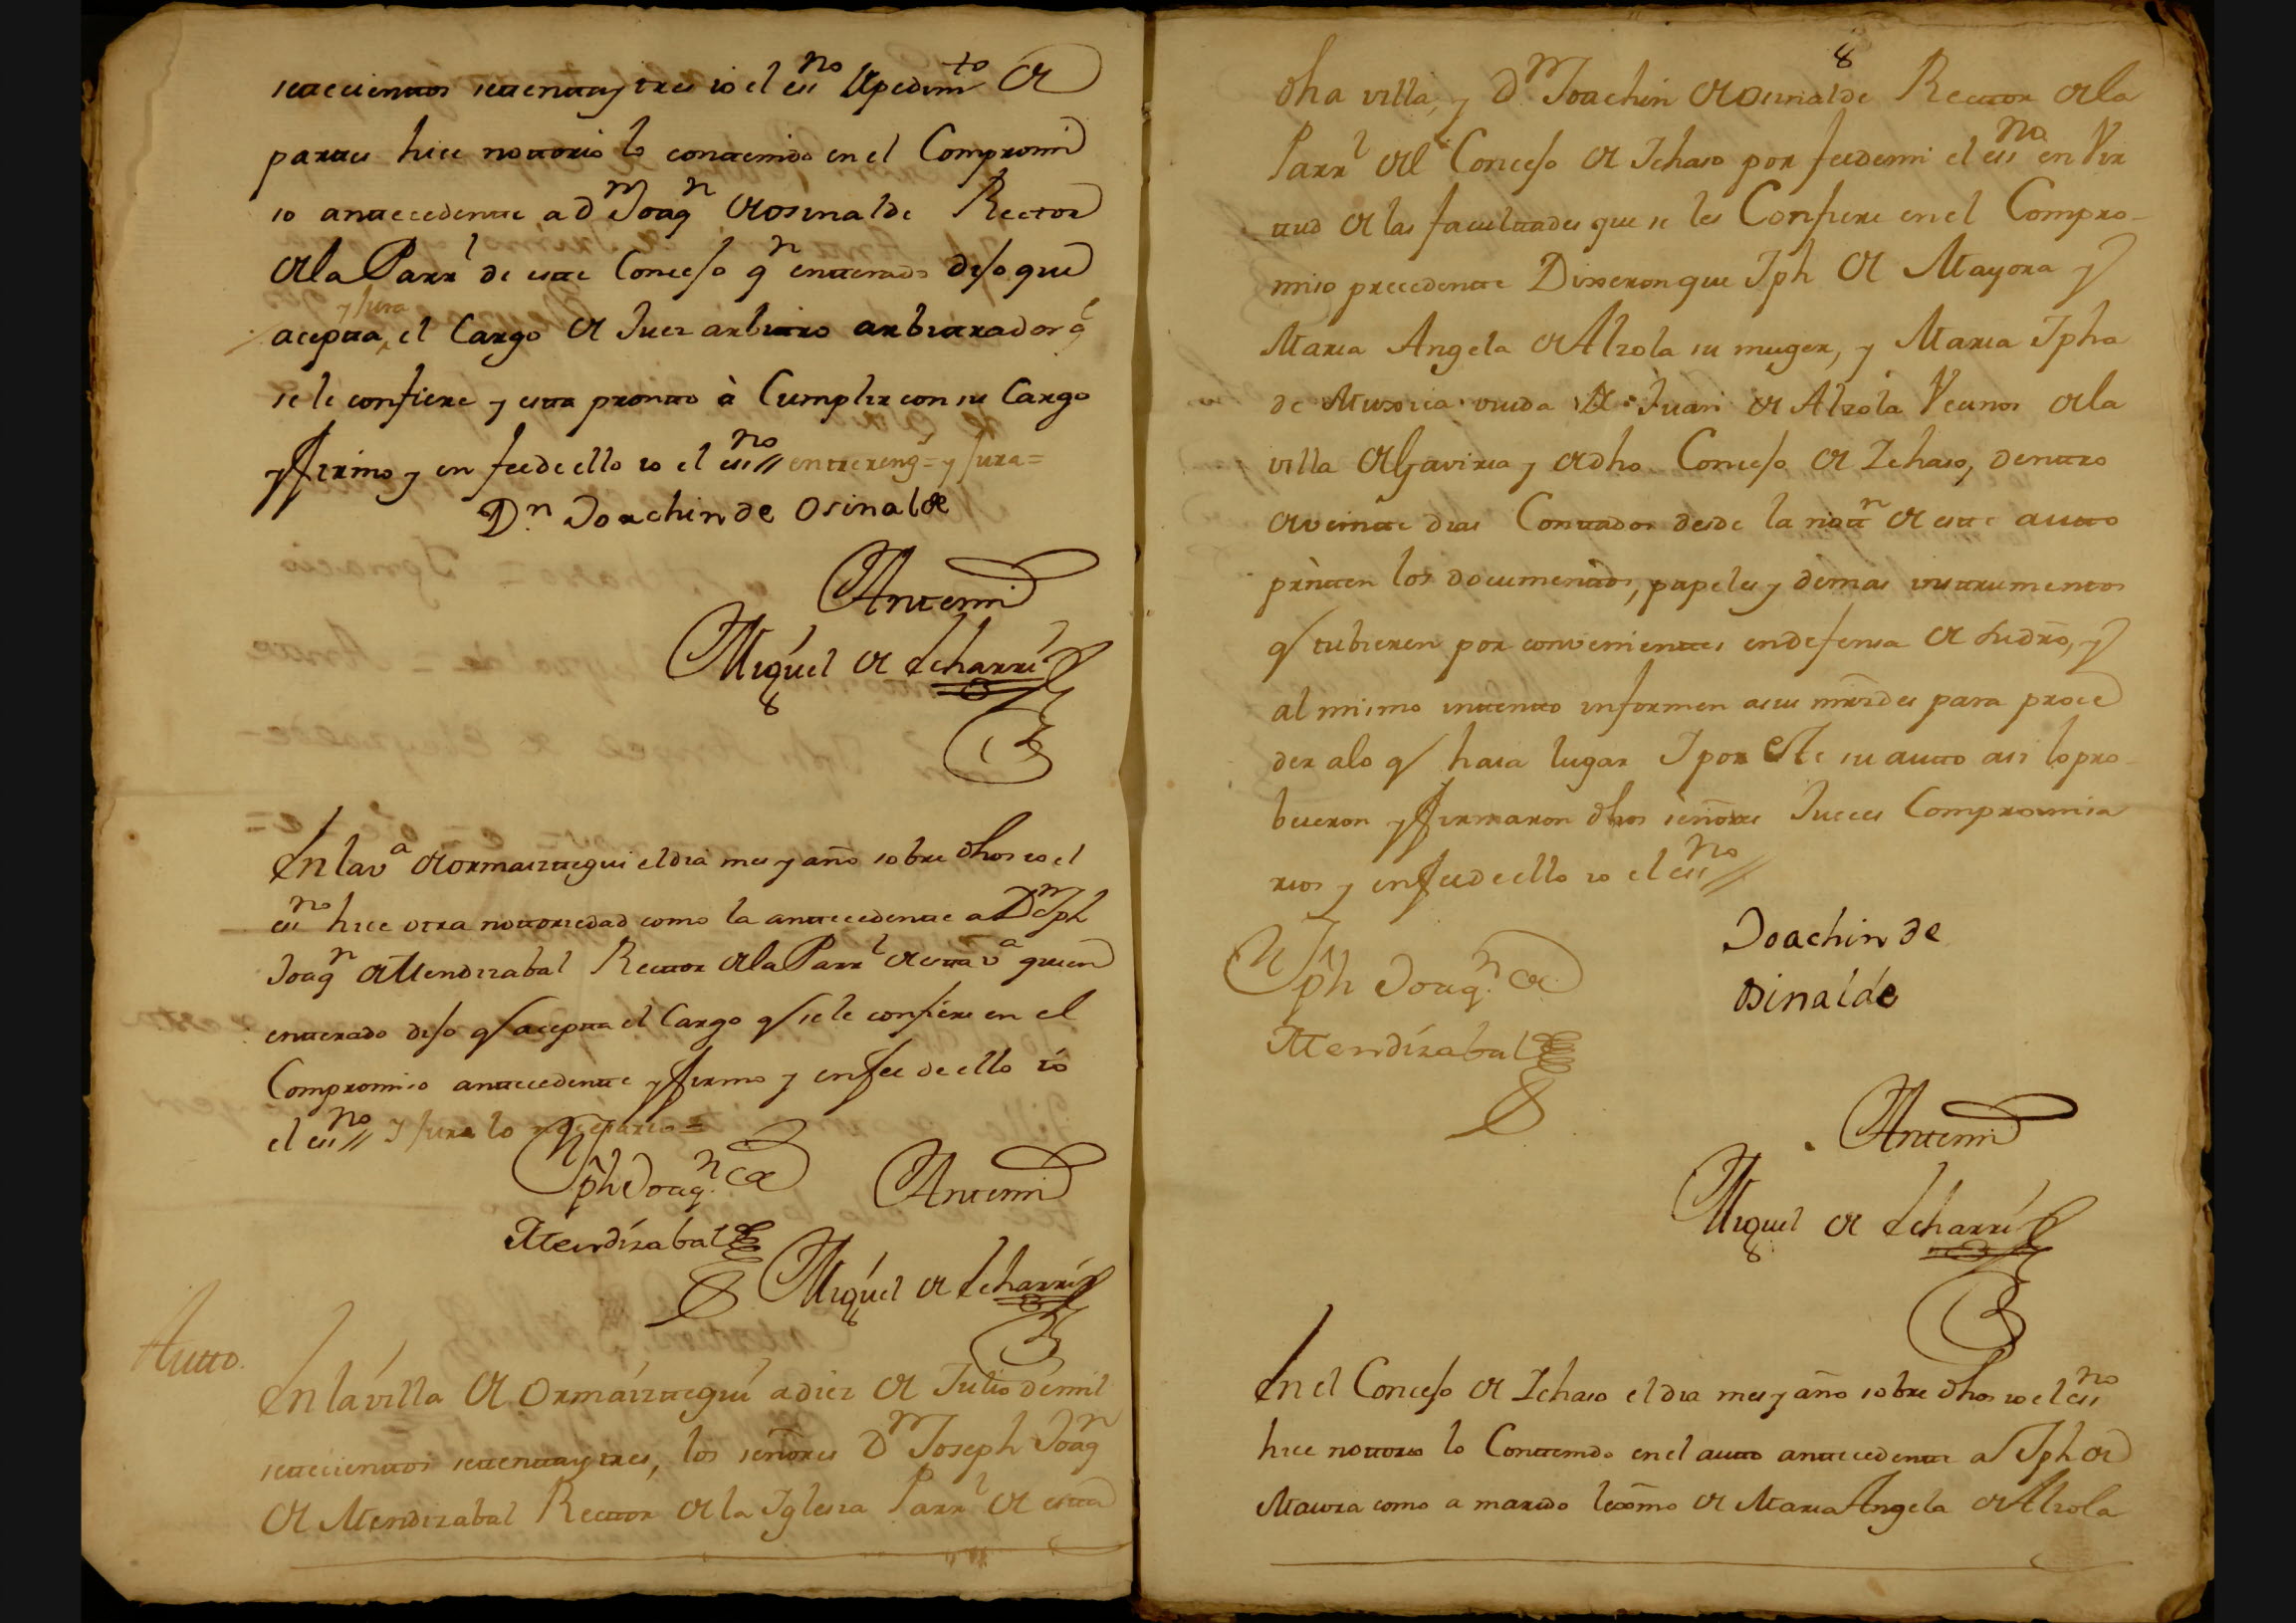 settecienttos settentta y tres io el essno a pedimto de
parttes hice nottorio lo conttenido en el Compromi
so anttecedentte a Dn Joaqn de osinalde Rector
de la Parrl de estte Concejo qn entterado dijo que
y jura
aceptta, el Cargo de Juez arbittro arbittrador q
se le confiere y estta prontto à Cumplir con su Cargo
y firmo y en fee de ello io el essno // entrereng = y jura =
Dn Joachin de Osinalde
Antemi
Miguel de Echarri
En la va de ormaizttegui el dia mes y año sobre dhos io el
essno hice otra nottoriedad como la anttecedentte a Dn Jph
Joaqn de Mendizabal Recttor de la Parrl de estta va quien
entterado dijo q aceptta el Cargo q se le confiere en el
Compromiso anttecedentte y firmo y en fee de ello io
el essno // I jura lo necesario =
Jph Joaqn de
Mendizabal
Antemi
Miguel de Echarri
Autto.
En la villa de Ormaizttegui a diez de Julio de mil
settecienttos settentta y tres, los señores Dn Joseph Joaqn
de Mendizabal Recttor de la Iglesia Parrl de estta
8
dha villa, y Dn Joachin de Osinalde Recttor de la
Parrl del Concejo de Ichaso por fee de mi el essno en Vir
ttud de las faculttades que se les Confiere en el Compro-
miso precedentte Dixeron que Jph de Mayora y
Maria Angela de Alzola su muger, y Maria Jpha
de Muxica viuda de Juan de Alzola Vecinos de la
villa de Gaviria y de dho Concejo de Ichaso, denttro
de veintte dias Conttados desde la nottn de estte autto
prestten los documenttos, papeles y demas insttrumentos
q tubieren por convenienttes en defensa de su dro, y
al mismo inttentto informen a sus mrzdes para proce
der a lo q haia lugar I por este su autto asi lo pro-
beieron y firmaron dhos señores Jueces Compromisa
rios y en fee de ello io el essno //
Jph Joaqn de
Mendizabal
Joachin de
Osinalde
Antemi
Miguel de Echarri
En el Concejo de Ichaso el dia mes y año sobre dhos io el essno
hice nottorio lo Conttenido en el autto anttecedentte a Jph de
Maiora como a marido lexmo de Maria Angela de Alzola